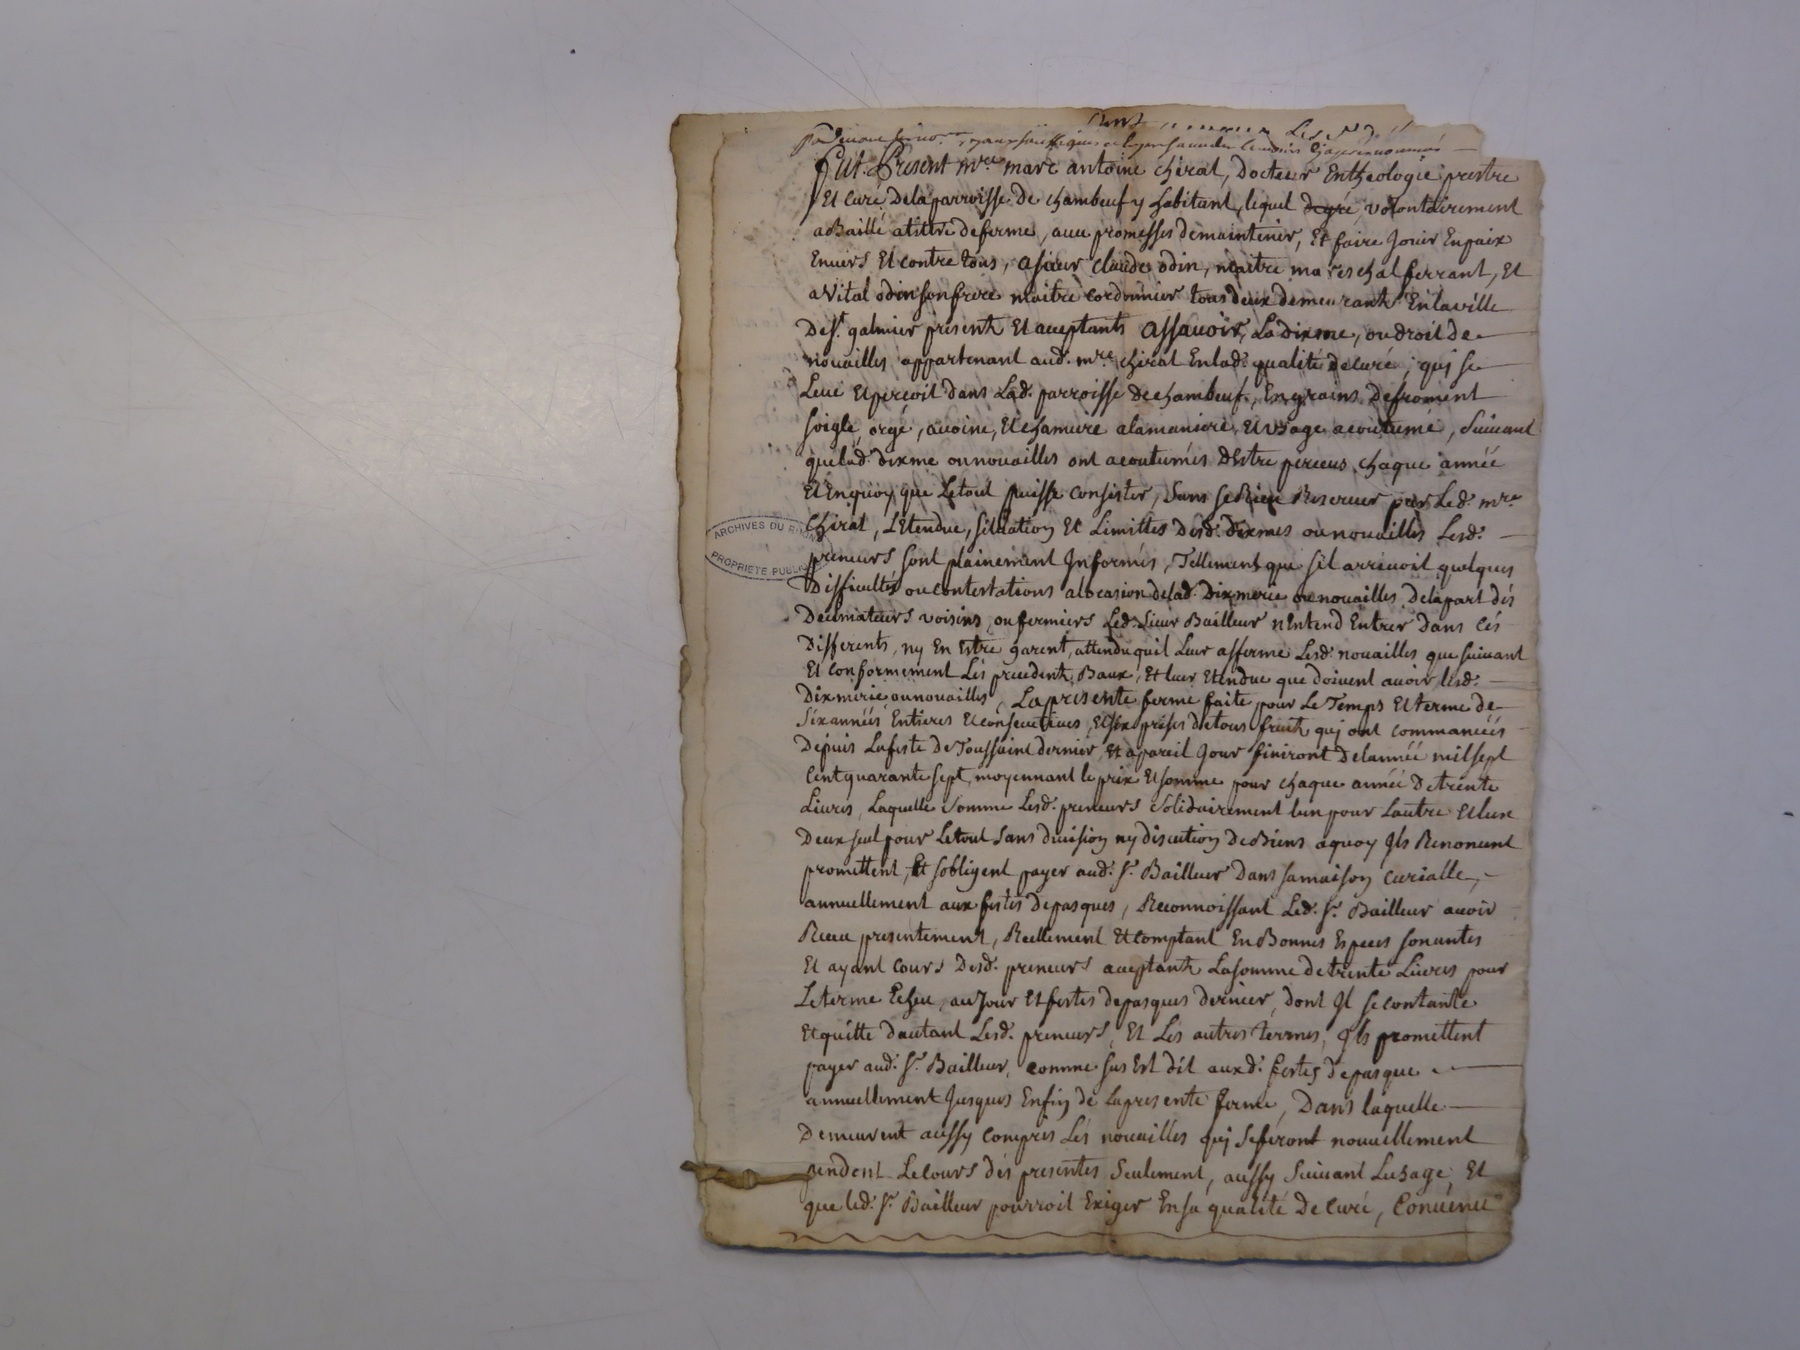 Fut Present mre marc antoine chirat, docteur En theologie prestre
Et curé Dela parroisse De chambeuf y habitant, lequel degré volontairement
a Baillé atiltre de ferme, avec promesses de maintenir, Et faire Jouir En paix
Envers Et contre tous, a sieur claude odin, maitre mareschal ferrant, Et
a Vital odin son frere maitre cordonnier tous deux demeurants En la ville
De st galmier presents Et acceptants Assavoir, La Dixme, ou droit de
novailles appartenant aud. mre chirat En lad. qualité de curé, qui se
Leve Et percoit dans Lad. parroisse de chambeuf, En grains de froment
soigle, orge, avoine, Et chanvre a la maniere, Et usage acoutumé, suivant
que lad. dixme ou novailles ont acoutumés d'Estre perceus chaque année
Et En quoy que Le tout puisse consister, sans se Rien Reserver par Led. mre
Chirat, L'Etendue, situation Et Limittes Desd. dixmes ou novailles Lesd.
ARCHIVES DU RHÔNE
PROPRIETE PUBLIQUE
preneurs sont plainement Informés, Tellement que sil arrivoit quelques
Difficultés ou contestations alocasion de lad. Dixmerie ou novailles De la part des
Decimateurs voisins, ou fermiers Led. sieur Bailleur n'Entend Entrer Dans ces
Differents, ny En Estre garent, attendu quil Leur afferme Lesd. novailles que suivant
Et conformement Les precedents Baux, Et leur Etendue que doivent avoir lesd.
Dixmerie ou novailles, La presente ferme faite pour Le Temps Et terme de
six années Entieres Et consecutives, Et six prises de tous fruits qui ont commancées
Depuis La feste de Toussaint dernier, Et a pareil Jour finiront De l'année mil sept
Cent quarante sept, moyennant le prix Et somme pour chaque année De trente
Livres, Laquelle somme Lesd. preneurs solidairement lun pour Lautre Et lun
Deux seul pour Le tout sans division ny discution De Biens a quoy Ils Renoncent
promettent, Et sobligent payer aud. sr. Bailleur Dans sa maison curialle,
annuellement aux festes de pasques, Reconnoissant Led. sr. Bailleur avoir
Receu presentement, Reellement Et comptant En Bonnes Especes sonantes
Et ayant cours Desd. preneurs acceptants La somme de trente Livres pour
Le terme Echeu, au Jour Et festes de pasques dernier, dont Il se contante
Et quitte dautant Lesd. preneurs, Et Les autres termes, Ils promettent
payer aud. sr. Bailleur, comme sus Est dit auxd. festes de pasque
annuellement Jusques En fin de La presente ferme, Dans laquelle
Demeurent aussy compris Les novailles qui se feront nouvellement
pendent Le cours des presentes seulement, aussy suivant Lusage, Et
que led. sr. Bailleur pourroit Exiger En sa qualité De curé, Convenu